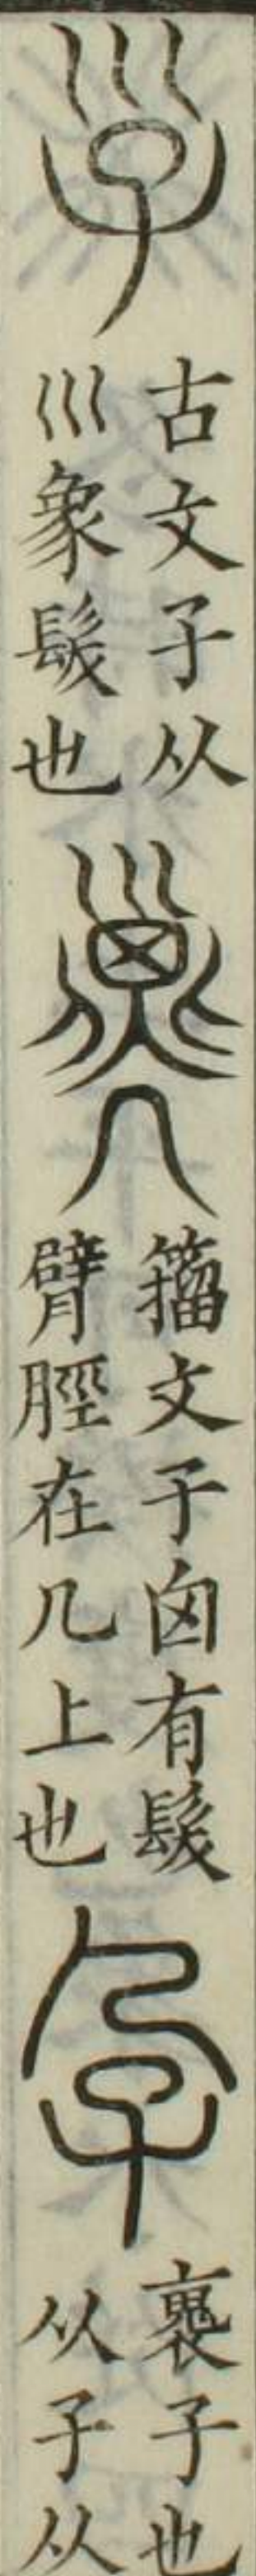 𡿹
古文子从
巛象髮也
𢀇
籀文子囟有髮
臂脛在几上也
孕
褢子也
从子从